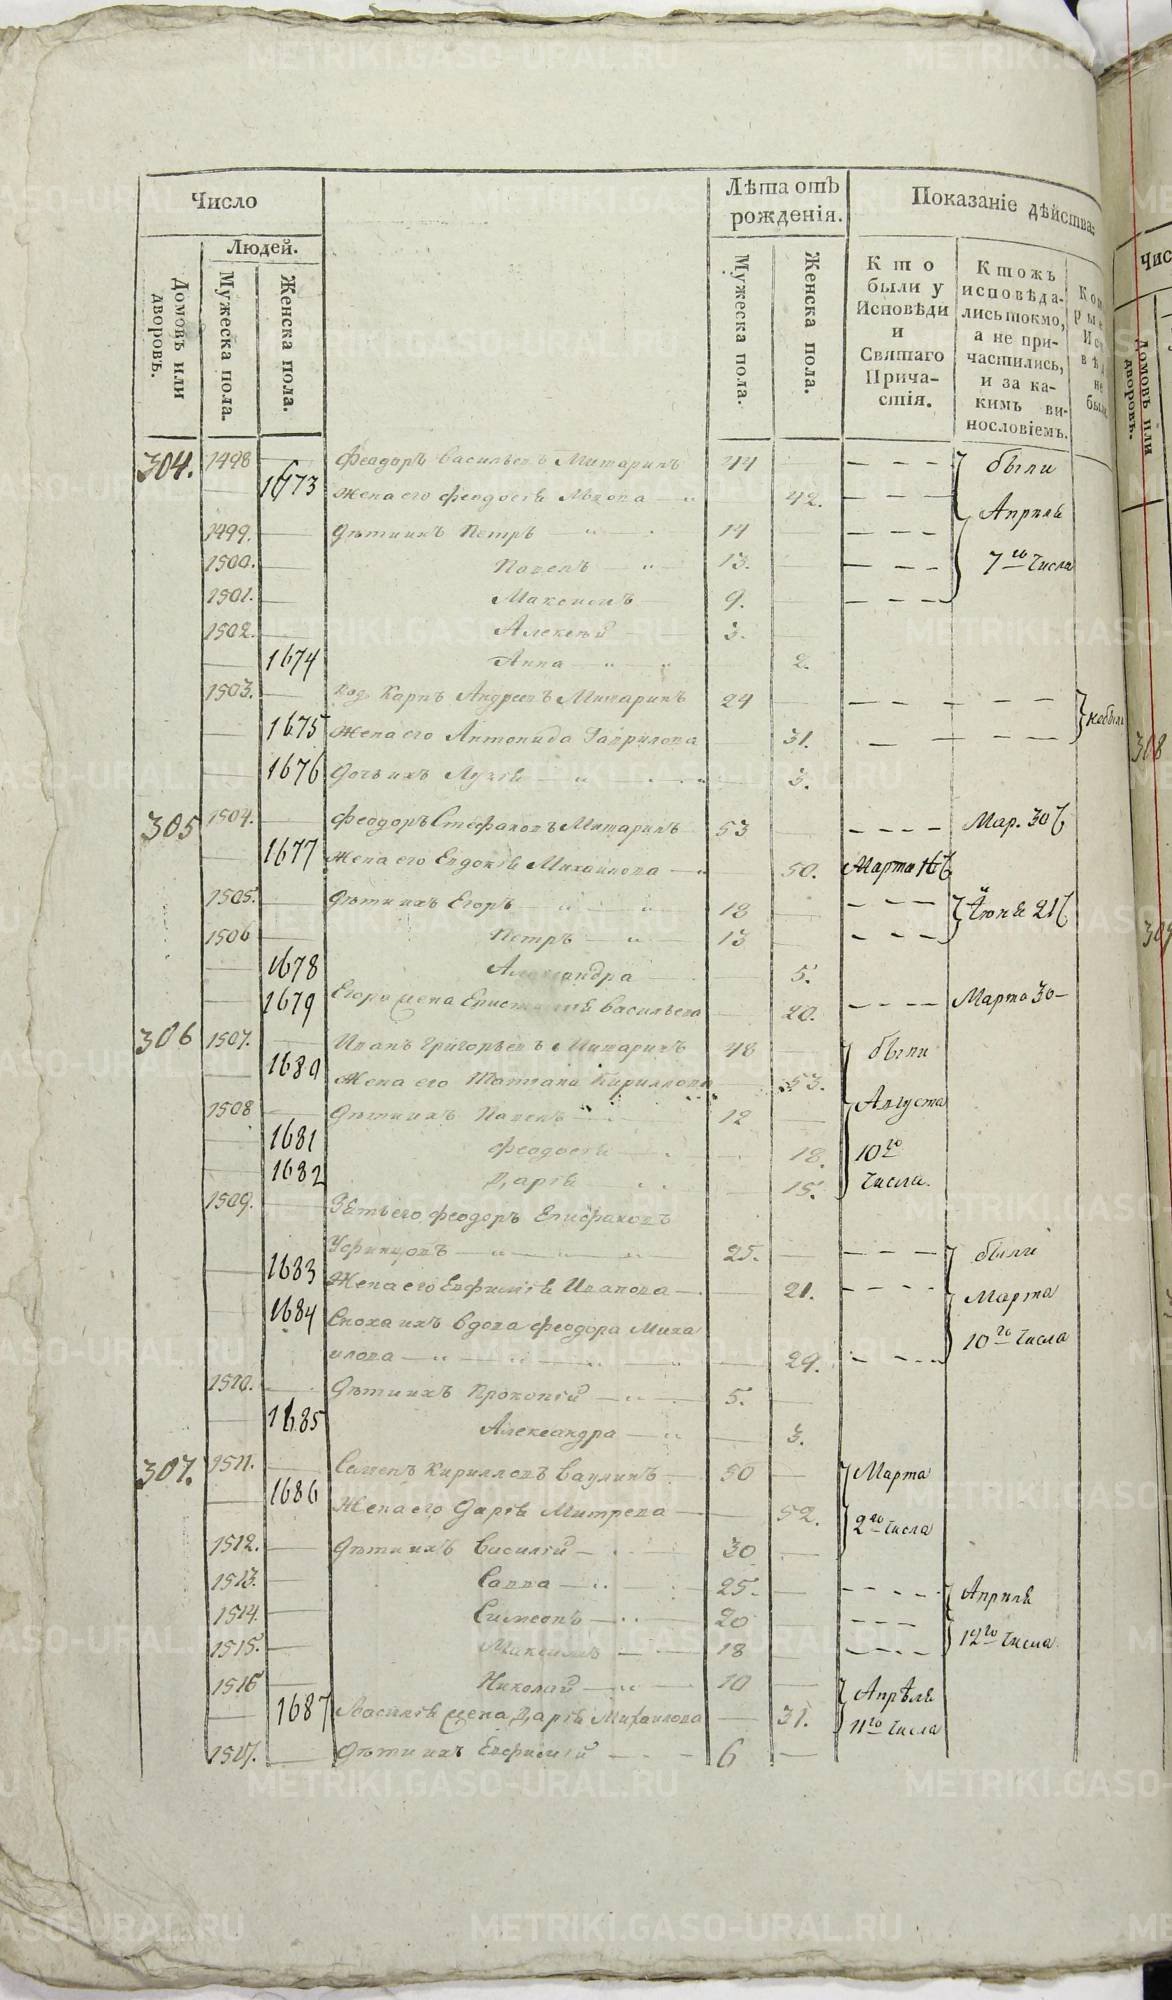 Число
Людей.
Домовъ или дворовъ.
Мужеска пола.
Женска пола.
Лѣта отъ рожденія.
Мужеска пола.
Женска пола.
Показаніе дѣйства.
Кто были у Исповѣди и Святаго Причастія.
Ктожъ исповѣдались токмо, а не причастились, и за какимъ винословіемъ.
304. 1498 Феодоръ Васильевъ Митаринъ 44 были
1673 Жена его Феодосія 42. Апрѣля
1499. Дѣти ихъ Петръ 14
1500. Павелъ 13. 7го числа
1501. Максимъ 9.
1502. Алексѣй 3.
1674 Анна 2.
1503. Карпъ Андреевъ Митаринъ 24
1675 Жена его Антонида Гаврилова 31. небыли
1676 Дочь ихъ 3.
305 1504. Феодоръ Стефановъ Митаринъ 53 Мар. 30
1677 Жена его Евдокія Михаилова 50. Марта 16
1505. Дѣти ихъ Егоръ 18 Июня 21
1506 Петръ 13
1678 Александра 5.
1679 Егора жена Васильева 20. Марта 30
306 1507. Иванъ Григорьевъ Митаринъ 48 были
1680 Жена его Татіана Кириллова 53. Августа
1508 Дѣти ихъ Павелъ 12
1681 Феодосія 18. 10го
1682 Дарія 15. числа.
1509. Зять его Феодоръ Епифановъ
25. были
1683 Жена его Евфимія Иванова 21. Марта
1684 Сноха ихъ вдова Феодора Миха
илова 29. 10го числа
1510. Дѣти ихъ Прокопій 5.
1685 Александра 3.
307. 1511. Семенъ Кирилловъ Ваулинъ 50 Марта
1686 Жена его Дарія 52. 2го числа
1512. Дѣти ихъ Василій 30
1513. Савва 25. Апрѣля
1514. Симеонъ 20
1515. Максимъ 18 12го числа
1516 Николай 10 Апрѣля
1687 Василія жена Дарія Михаилова 31. 11го числа
1517. Дѣти ихъ Евфимій 6
METRIKI.GASO-URAL.RU